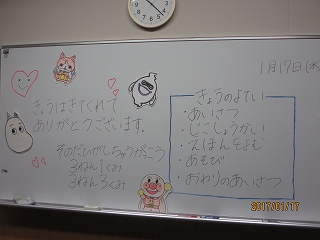 1月17日(水)
きょうはきてくれて
ありがとうございます。
3ねん1くみ
3ねん3くみ
きょうのよてい
・あいさつ
・じこしょうかい
・えほんをよむ
・あそび
・おわりのあいさつ
2017/01/17